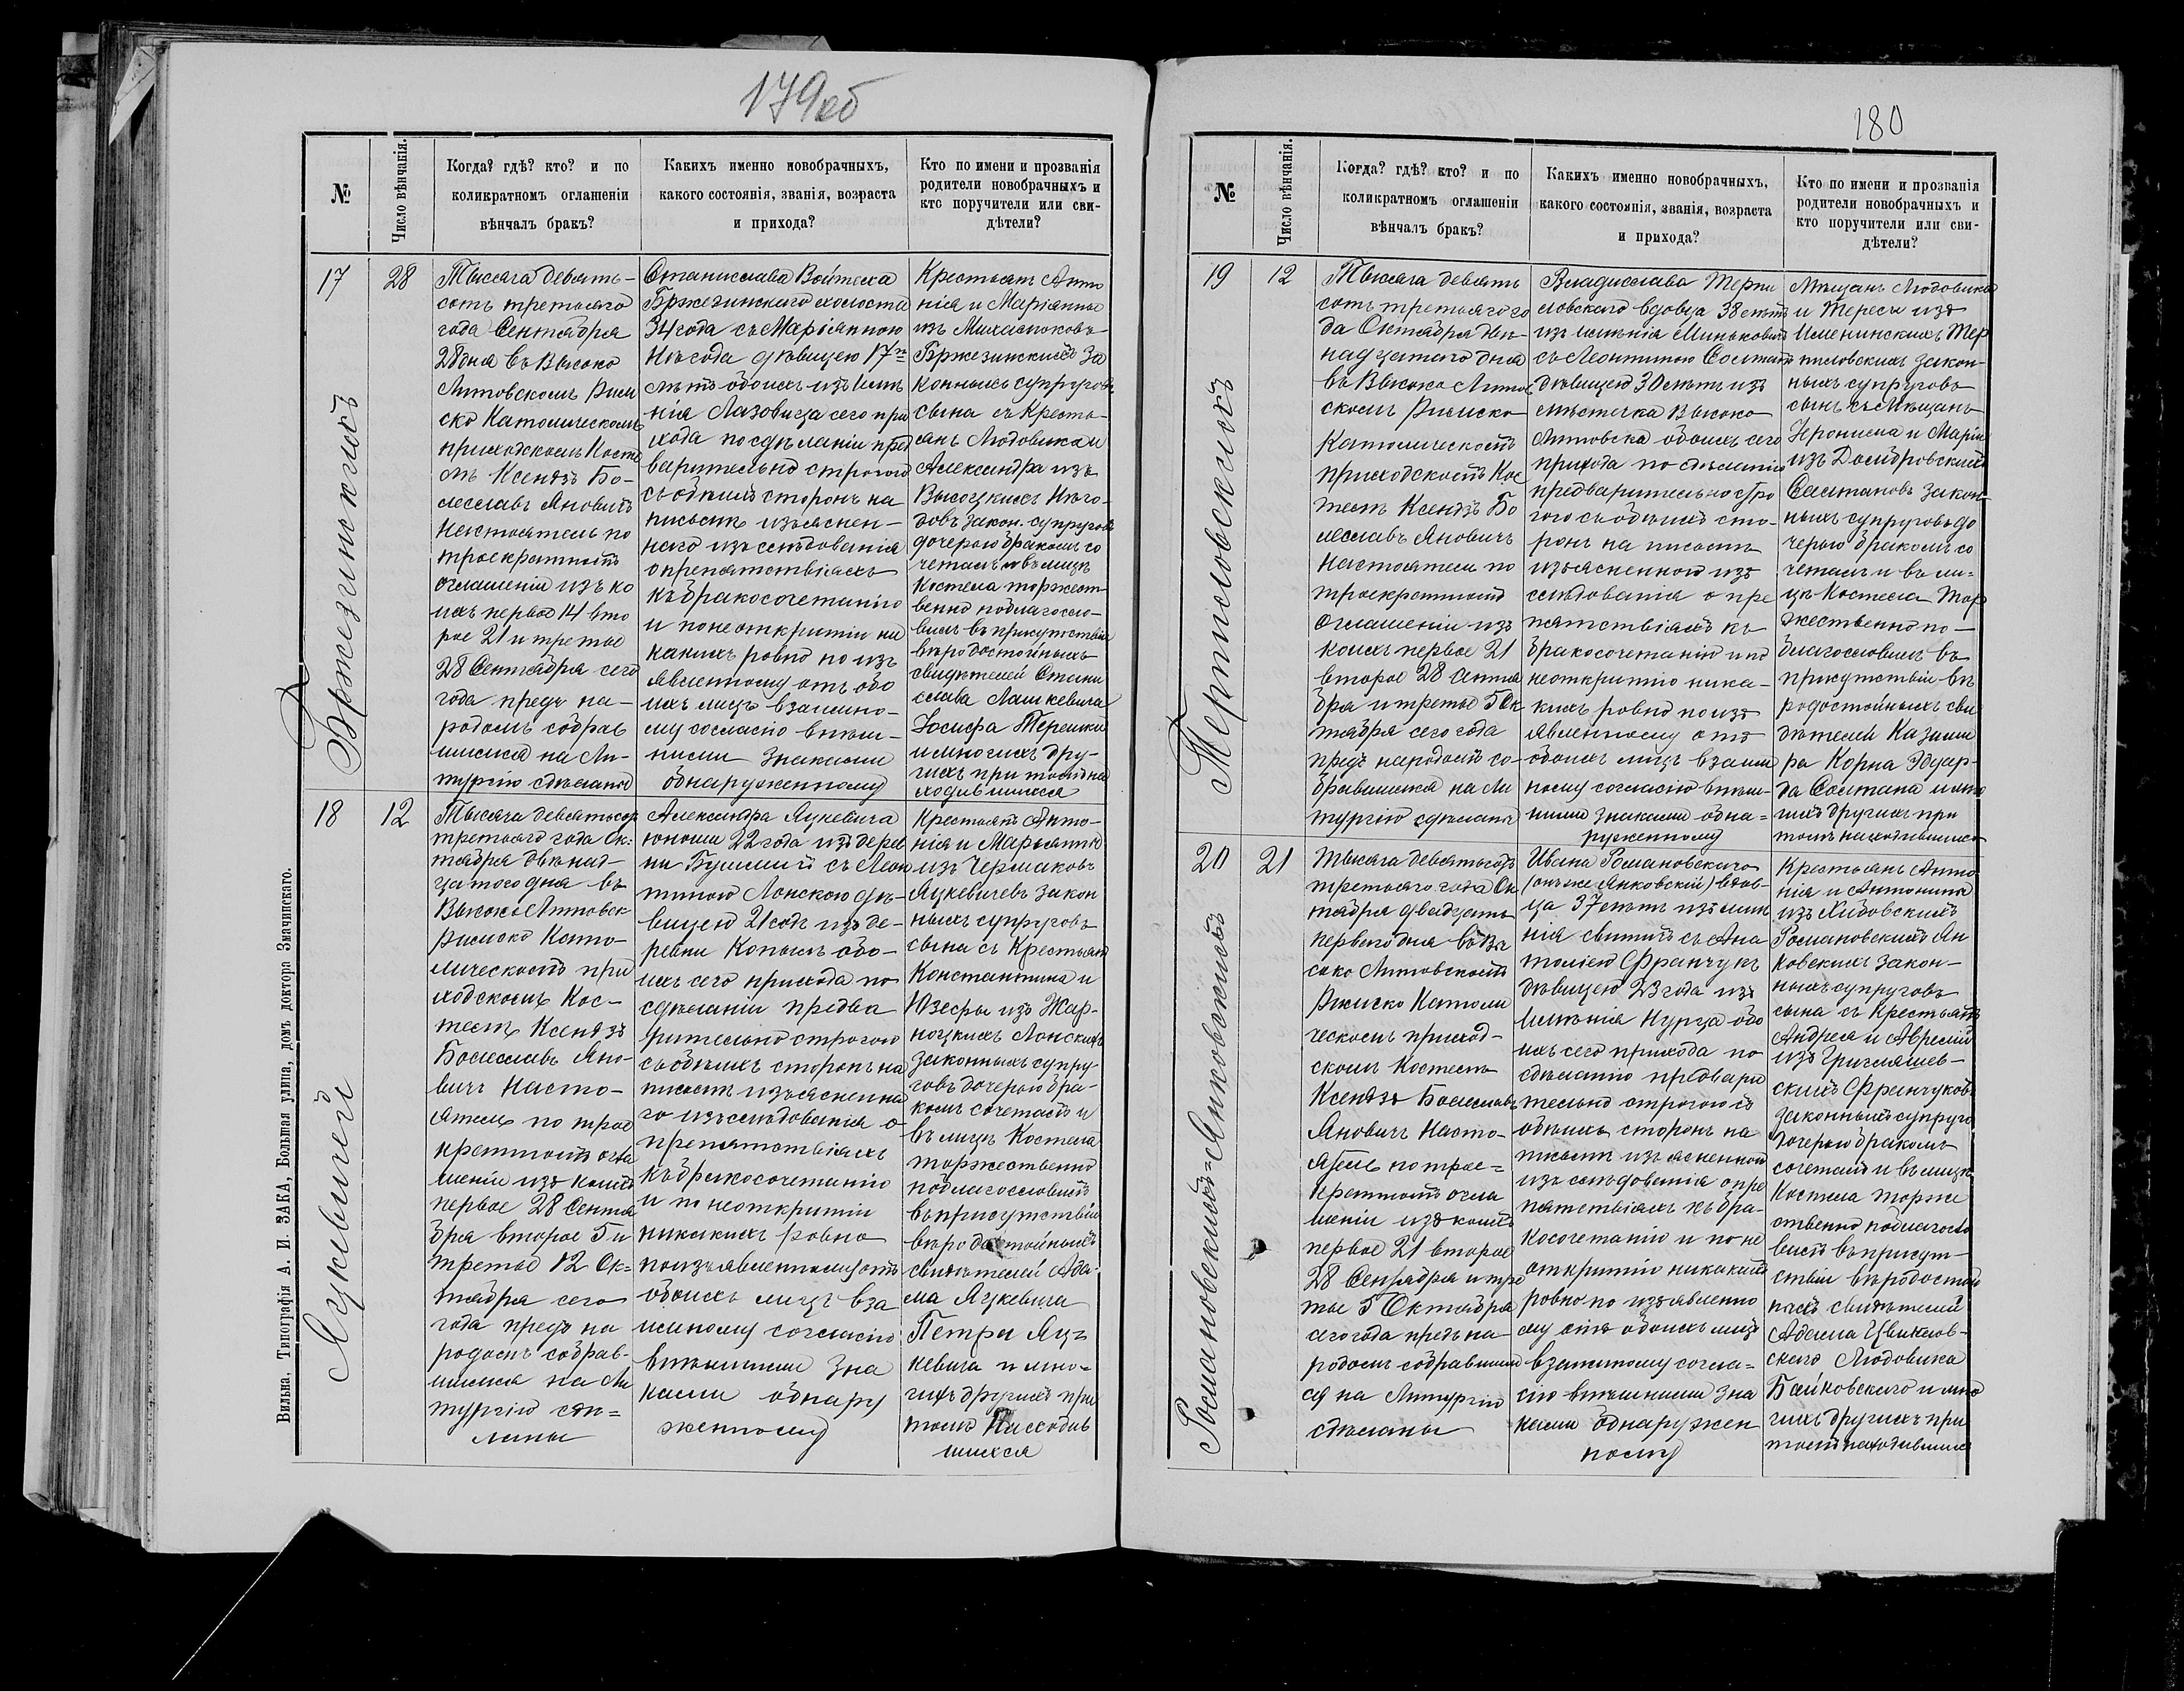 179об
№
Число вѣнчанія.
Когда? гдѣ? кто? и по
коликратномъ оглашеніи
вѣнчалъ бракъ?
Какихъ именно новобрачныхъ,
какого состоянія, званія, возраста
и прихода?
Кто по имени и прозванія
родители новобрачныхъ и
кто поручители или сви-
дѣтели?
Бржезинскихъ
17
28
Тысяча девять-
сотъ третьяго
года Сентября
28 дня въ Высоко
Литовскомъ Рим
ско Католическомъ
приходскомъ Косте
лѣ Ксендзъ Бо-
леславъ Яновичъ
Настоятель по
троекратномъ
оглашеніи изъ ко
ихъ первое 14 вто
рое 21 и третье
28 Сентября сего
года предъ на-
родомъ собрав
шимся на Ли-
тургію сдѣланно
Станислава Войтеха
Бржезинскаго холоста
34 года съ Маріанною
Нѣгода дѣвицею 17
лѣтъ обоихъ изъ имѣ
нія Лазовица сего при
хода по сдѣланіи пред
варительно строгого
съ обѣихъ сторонъ на
письмѣ изъяснен-
наго изслѣдованія
о препятствіяхъ
къ бракосочетанію
и по неоткрытіи ни
какихъ ровно по изъ
явленному отъ обо
ихъ лицъ взаимно-
му согласію внѣш-
ними знаками
обнаруженному
Крестьянъ Анто
нія и Маріанны
изъ Михалюковъ
Бржезинскихъ за
конныхъ супруговъ
сына съ Кресть-
янъ Людовика и
Александра изъ
Высоцкихъ Нѣго-
довъ закон. супруговъ
дочерью бракомъ со
четалъ и въ лицѣ
Костела торжест-
венно поблагосло-
вилъ въ присутствіи
вѣродостойныхъ
свидѣтелей Стани
слава Лашкевича
Іосифа Терешки
и многихъ дру-
гихъ при томъ на
ходившихся
Яцкевичей
18
12
Тысяча девятьсотъ
третьяго года Ок-
тября двѣнад-
цатого дня въ
Высоко Литовск
Римско Като-
лическомъ при
ходскомъ Кос-
телѣ Ксендзъ
Болеславъ Яно-
вичъ Насто-
ятель по трое
кратномъ огла
шеніи изъ коихъ
первое 28 Сентя
бря второе 5 и
третье 12 Ок-
тября сего
года предъ на
родомъ собрав-
шимся на Ли
тургію сдѣ-
ланы
Александра Яцкевича
юношу 22 года изъ дерев
ни Бушмичъ съ Леон
тиною Лонскою дѣ-
вицею 21 года изъ де-
ревни Копылъ обо-
ихъ сего прихода по
сдѣланіи предва
рительно строгого
съ обѣихъ сторонъ на
письмѣ изъясненна
го изъслѣдованія о
препятствіяхъ
къ бракосочетанію
и по неоткрытіи
никакихъ ровно
по изъявленному отъ
обоихъ лицъ вза
имному согласію
внѣшними зна
ками обнару
женному
Крестьянъ Анто-
нія и Маріанны
изъ Чермаковъ
Яцкевичевъ закон
ныхъ супруговъ
сына съ Крестьянъ
Константина и
Юзефы изъ Жар-
ноцкихъ Лонскихъ
законныхъ супру-
говъ дочерью бра-
комъ сочеталъ и
въ лицѣ Костела
торжественно
поблагословилъ
въ присутствіи
вѣродостойныхъ
свидѣтелей Ада-
ма Яцкевича
Петра Яц-
кевича и мно-
гихъ другихъ при
томъ находив
шихся
Вильна, Типографія А. И. ЗАКА, Большая улица, домъ доктора Значинскаго.
180
№
Число вѣнчанія.
Когда? гдѣ? кто? и по
коликратномъ оглашеніи
вѣнчалъ бракъ?
Какихъ именно новобрачныхъ,
какого состоянія, званія, возраста
и прихода?
Кто по имени и прозванія
родители новобрачныхъ и
кто поручители или сви-
дѣтели?
Терпиловскихъ
19
12
Тысяча девять
сотъ третьяго го
да Октября двѣ-
надцатого дня
въ Высоко Литов
скомъ Римско
Католическомъ
приходскомъ Кос
телѣ Ксендзъ Бо
леславъ Яновичъ
Настоятель по
троекратномъ
оглашеніи изъ
коихъ первое 21
второе 28 Сентя
бря и третье 5 Ок
тября сего года
предъ народомъ со-
бравшимся на Ли
тургію сдѣланы
Владислава Терпи
ловского вдовца 38 лѣтъ
изъ имѣнія Миньковичъ
съ Леонтиною Солтанъ
дѣвицею 30 лѣтъ изъ
мѣстечка Высоко
Литовска обоихъ сего
прихода по сдѣланію
предварительно стро
гого съ обѣихъ сто-
ронъ на письмѣ
изъясненного изъ
слѣдованія о пре
пятствіяхъ къ
бракосочетанію и по
неоткрытію ника-
кихъ ровно по изъ
явленному отъ
обоихъ лицъ взаим
ному согласію внѣш-
ними знаками обна-
руженному
Мѣщанъ Людовика
и Тереси изъ
Именинскихъ Тер
пиловскихъ закон-
ныхъ супруговъ
сынъ съ Мѣщанъ
Іеронима и Маріи
изъ Домбровскихъ
Солтановъ закон-
ныхъ супруговъ до
черью бракомъ со
четалъ и въ ли-
цѣ Костела тор
жественно по-
благословилъ въ
присутствіи вѣ
родостойныхъ сви
дѣтелей Казими
ра Корна Эдуар-
да Солтана и мно
гихъ другихъ при
томъ находившихся
Романовскихъ=Янковскихъ
20
21
Тысяча девятьсотъ
третьяго года Ок
тября двадцать
первого дня въ Вы
соко Литовскомъ
Римско Католи
ческомъ приход-
скомъ Костелѣ
Ксендзъ Болеславъ
Яновичъ Насто-
ятель по трое=
кратномъ огла
шеніи изъ коихъ
первое 21 второе
28 Сентября и тре
тье 5 Октября
сего года предъ на-
родомъ собравшим
ся на Литургію
сдѣланы
Ивана Романовского
(онъ же Янковскій) вдов-
ца 37 лѣтъ изъ имѣ
нія Свитичъ съ Ана
толіею Франчукъ
дѣвицею 23 года изъ
имѣнія Нурца обо
ихъ сего прихода по
сдѣланію предвари
тельно строгого съ
обѣихъ сторонъ на
письмѣ изъясненного
изъслѣдованія о пре
пятствіяхъ къ бра-
косочетанію и по не
открытію никакихъ
ровно по изъявленно
му отъ обоихъ лицъ
взаимному согла-
сію внѣшними зна
ками обнаружен
ному
Крестьянъ Анто
нія и Антонины
изъ Хидовскихъ
Романовскихъ Ян
ковскихъ закон-
ныхъ супруговъ
сына съ Крестьянъ
Андрея и Афреміи
изъ
скихъ Франчуковъ
законныхъ супруго
дочерью бракомъ
сочеталъ и въ лицѣ
Костела торже
ственно поблагосло
вилъ въ присут-
ствіи вѣродостой
ныхъ свидѣтелей
Адама Цвиклов-
ского Людовика
Байковского и мно
гихъ другихъ при
томъ находившихся